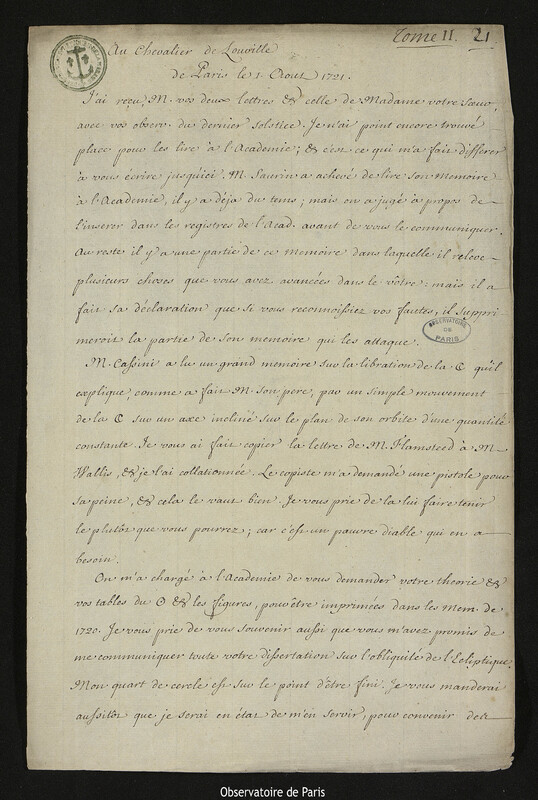 Tome II. 21
Au Chevalier de Louville
de Paris le 1. Aout 1721.
J'ai reçu, M. vos deux lettres & celle de Madame votre Sœur,
avec vos observ. du dernier solstice. Je n'ai point encore trouvé
place pour les lire à l'Academie; & c'est ce qui m'a fait differer
à vous écrire jusqu'ici. M. Saurin a achevé de lire son Memoire
à l'Academie, il y a déja du tems; mais on a jugé à propos de
l'inserer dans les registres de l'Acad. avant de vous le communiquer.
Au reste il y a une partie de ce memoire dans laquelle il releve
plusieurs choses que vous avez avancées dans le vôtre: mais il a
fait sa déclaration que si vous reconnoissiez vos fautes, il suppri
meroit la partie de son memoire qui les attaque.
OBSERVATOIRE
DE
PARIS
M. Cassini a lu un grand memoire sur la libration de la ☾ qu'il
explique, comme a fait M. son pere, par un simple mouvement
de la ☾ sur un axe incliné sur le plan de son orbite d'une quantité
constante. Je vous ai fait copier la lettre de M. Flamsteed à M.
Wallis, & je l'ai collationnée. Le copiste m'a demandé une pistole pour
sa peine, & cela le vaut bien. Je vous prie de la lui faire tenir
le plutôt que vous pourrez; car c'est un pauvre diable qui en a
besoin.
On m'a chargé à l'Academie de vous demander votre théorie &
vos tables du ☉ & les figures, pour être imprimées dans les Mem. de
1720. Je vous prie de vous souvenir aussi que vous m'avez promis de
me communiquer toute votre dissertation sur l'obliquité de l'Ecliptique.
Mon quart de cercle est sur le point d'être fini. Je vous manderai
aussitôt que je serai en état de m'en servir, pour convenir des
Observatoire de Paris